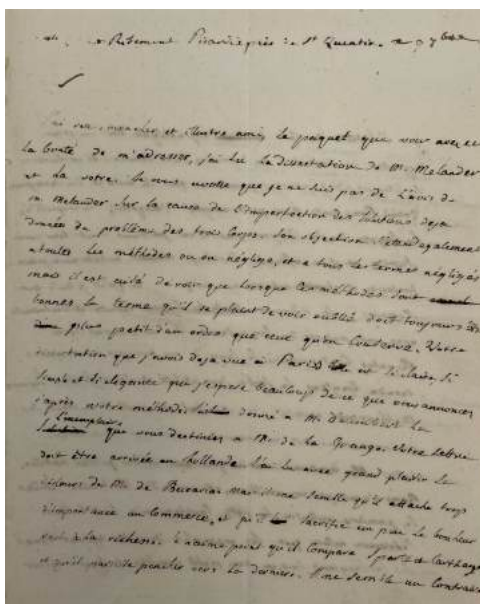 Ribemont Picardie près de St Quentin. ce 9 7bre
J'ai reçu, mon cher et illustre ami, le paquet que vous avez eu
la bonté de m'adresser, j'ai lu la dissertation de M. Melander
et la votre. Je vous avoue que je ne suis pas de l'avis de
M. Melander sur la cause de l'imperfection des solutions deja
données du problème des trois Corps. Son objection s'étend egalement
a toutes les méthodes ou on néglige, et a tous les termes négligés
mais il est aisé de voir que lorsque ces méthodes sont
bonnes le terme qu'il se plaint de voir oublié doit toujours être
plus petit d'un ordre que ceux qu'on conserve. Votre
dissertation que j'avois deja vue a Paris est si claire, si
simple et si élégante que j'espere beaucoup de ce que vous annoncez
d'après votre méthode. donné a M. d'Alembert
l'exemplaire que vous destiniez a M. de la Grange. Votre lettre
doit être arrivée en hollande. J'ai lu avec grand plaisir le
discours de M. de Beccaria. Mais il me semble qu'il attache trop
d'importance au Commerce, et qu'il sacrifie un peu le bonheur
a la richesse. Je n'aime point qu'il compare Sparte a Carthage
et qu'il paroisse pencher vers la derniere. Il me semble au contraire